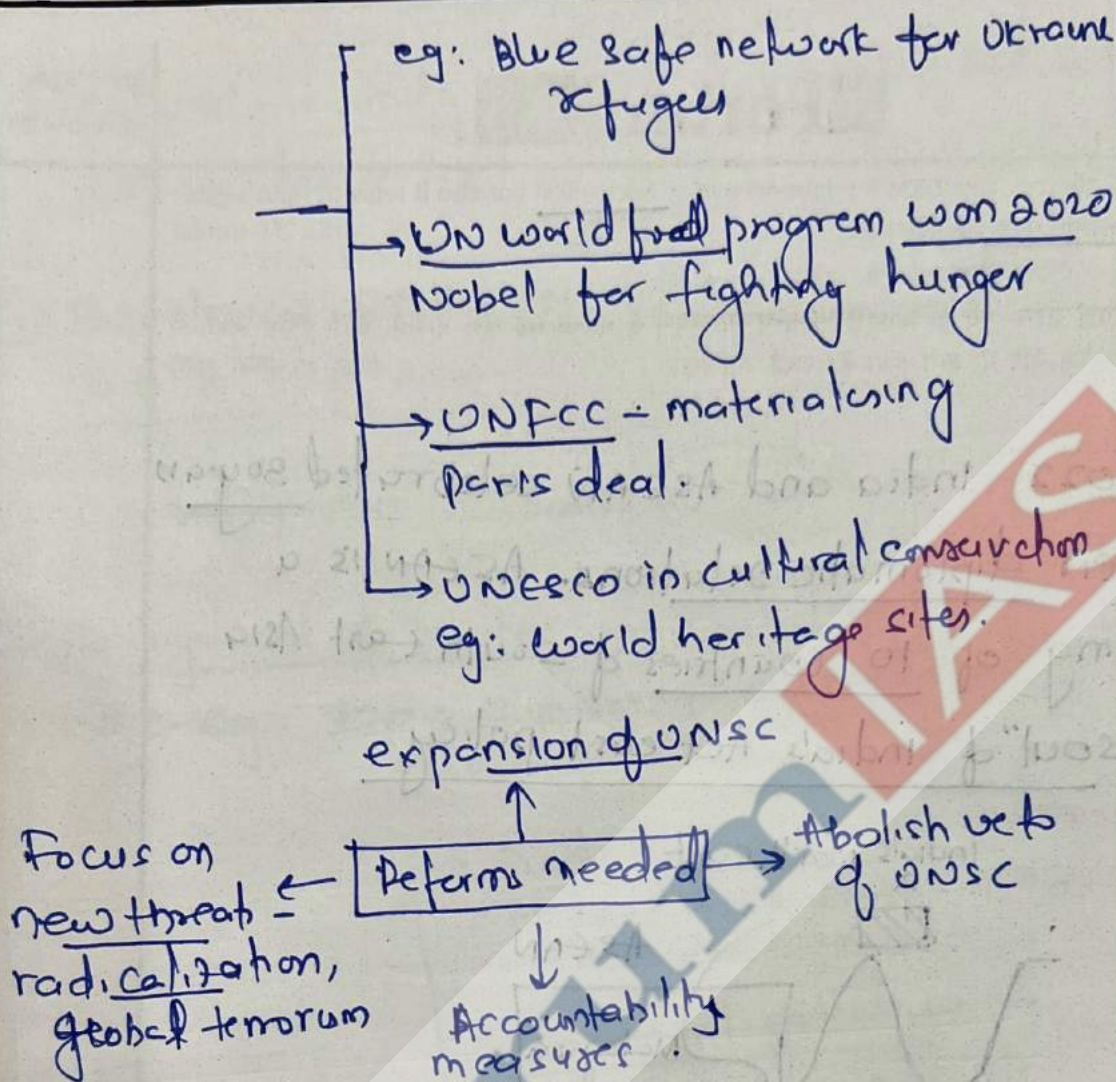 eg: Blue safe network for Ukraine
refugees
UN world food program won 2020
Nobel for fighting hunger
UNFCC - materialising
paris deal.
UNESCO in cultural conservation
eg: world heritage sites.
expansion of UNSC
Focus on
new threats -
radicalization,
global terrorism
Reforms needed
Abolish veto
of UNSC
Accountability
measures.
rum IAS